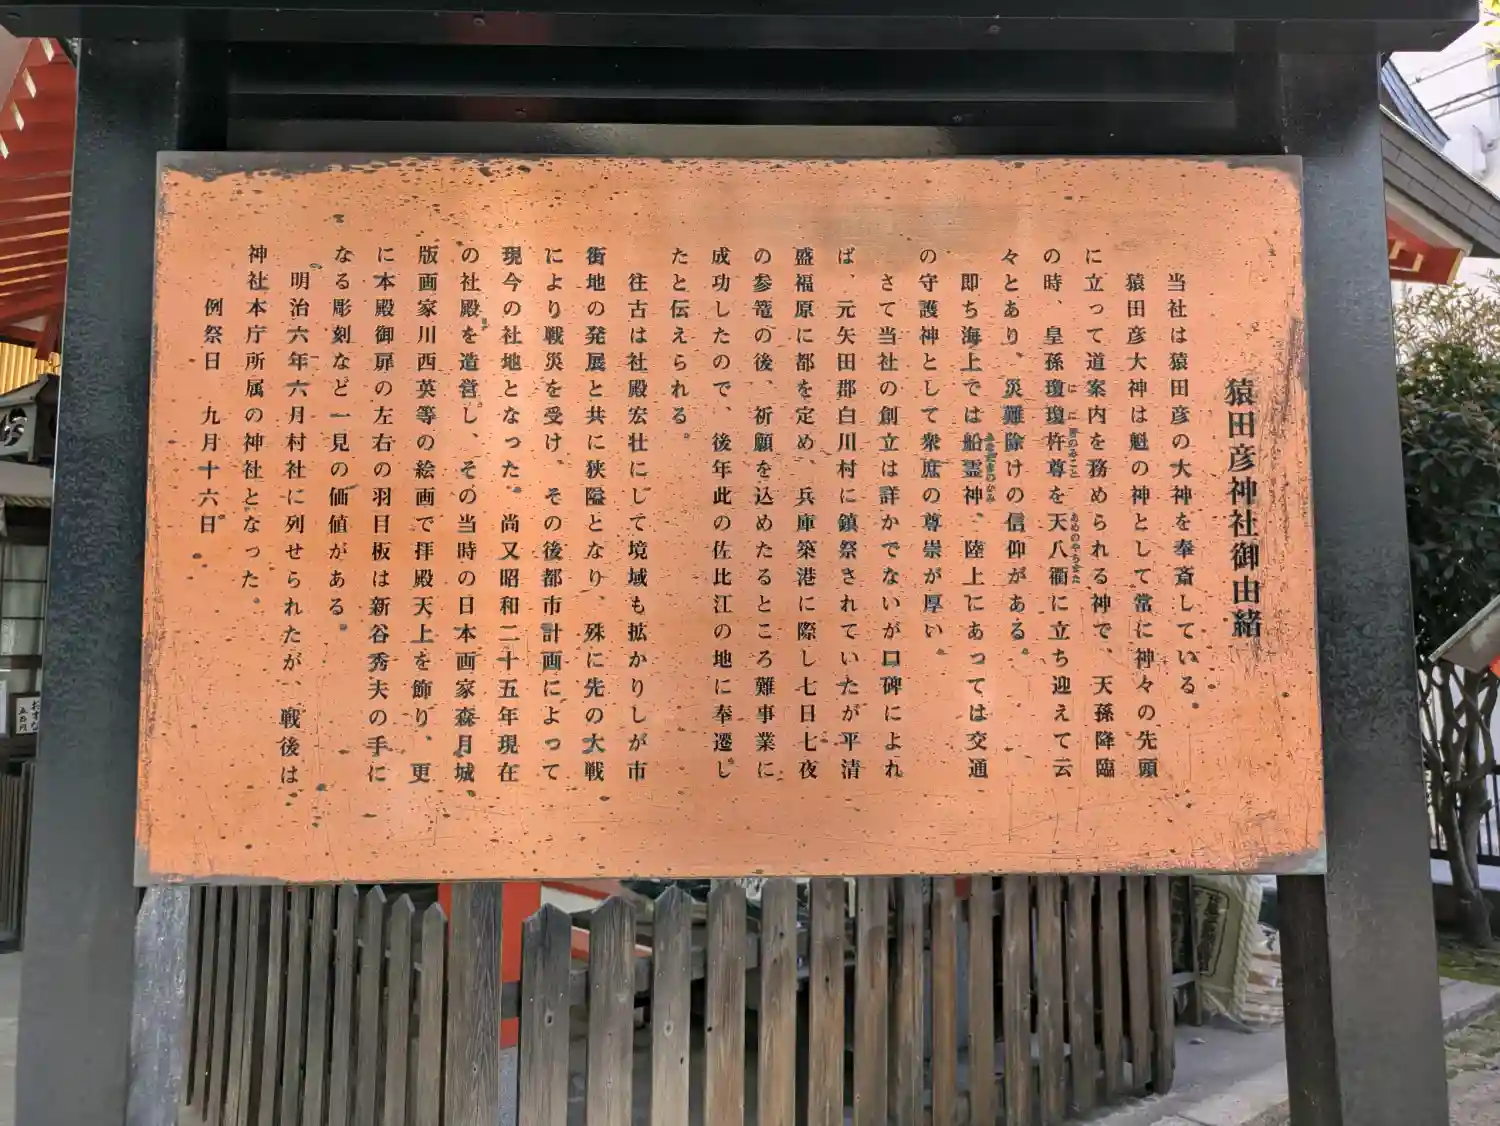 猿田彦神社御由緒
当社は猿田彦の大神を奉斎している。
猿田彦大神は魁の神として常に神々の先頭
に立って道案内を務められる神で、天孫降臨
の時、皇孫瓊瓊杵尊を天八衢に立ち迎えて云
々とあり、災難除けの信仰がある。
即ち海上では船霊神、陸上にあっては交通
の守護神として衆庶の尊崇が厚い。
さて当社の創立は詳かでないが口碑によれ
ば、元矢田郡白川村に鎮祭されていたが平清
盛福原に都を定め、兵庫築港に際し七日七夜
の参篭の後、祈願を込めたるところ難事業に
成功したので、後年此の佐比江の地に奉遷し
たと伝えられる。
往古は社殿宏壮にして境域も拡かりしが市
街地の発展と共に狭隘となり、殊に先の大戦
により戦災を受け、その後都市計画によって
現今の社地となった。尚又昭和二十五年現在
の社殿を造営し、その当時の日本画家森月城、
版画家川西英等の絵画で拝殿天上を飾り、更
に本殿御扉の左右の羽目板は新谷秀夫の手に
なる彫刻など一見の価値がある。
明治六年六月村社に列せられたが、戦後は
神社本庁所属の神社となった。
例祭日 九月十六日